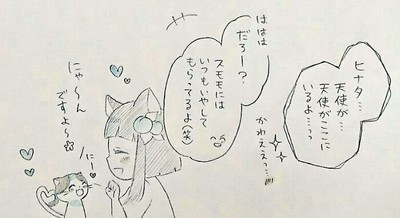 ヒナタ…
天使が…
天使がここに
いるよ…っっ
かわええっ…!!!!
ははは
だろー？
スモモには
いつもいやして
もらってるよ(笑)
にゃ～ん
ですよ～
にー